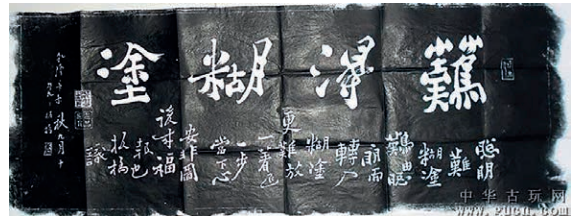 難得糊塗
聰明
難
糊塗
難由聰
明而
轉入
糊塗
更難放
一著退
一步
當下心
安非圖
後來福
報也
板橋
識
秋九月十
中华古玩网
www.gucn.com